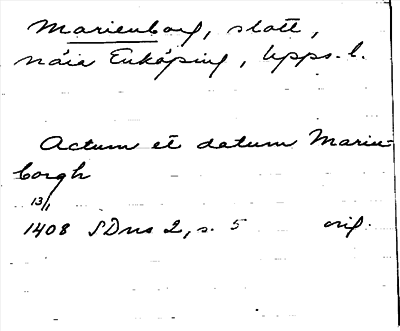 Marienborg, slott,
nära Enköping, Upps. l.
Actum et datum Marien-
borgh
13/1
1408 SDns 2, s. 5 orig.